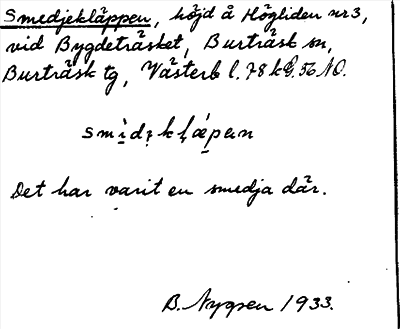 Smedjekläppen, höjd å Högliden nr 3,
vid Bygdeträsket, Burträsk sn,
Burträsk tg, Västerb l. 78 k G. 56 NO.
smìdɛkḷǽpɛn
Det har varit en smedja där.
B. Nygren 1933.